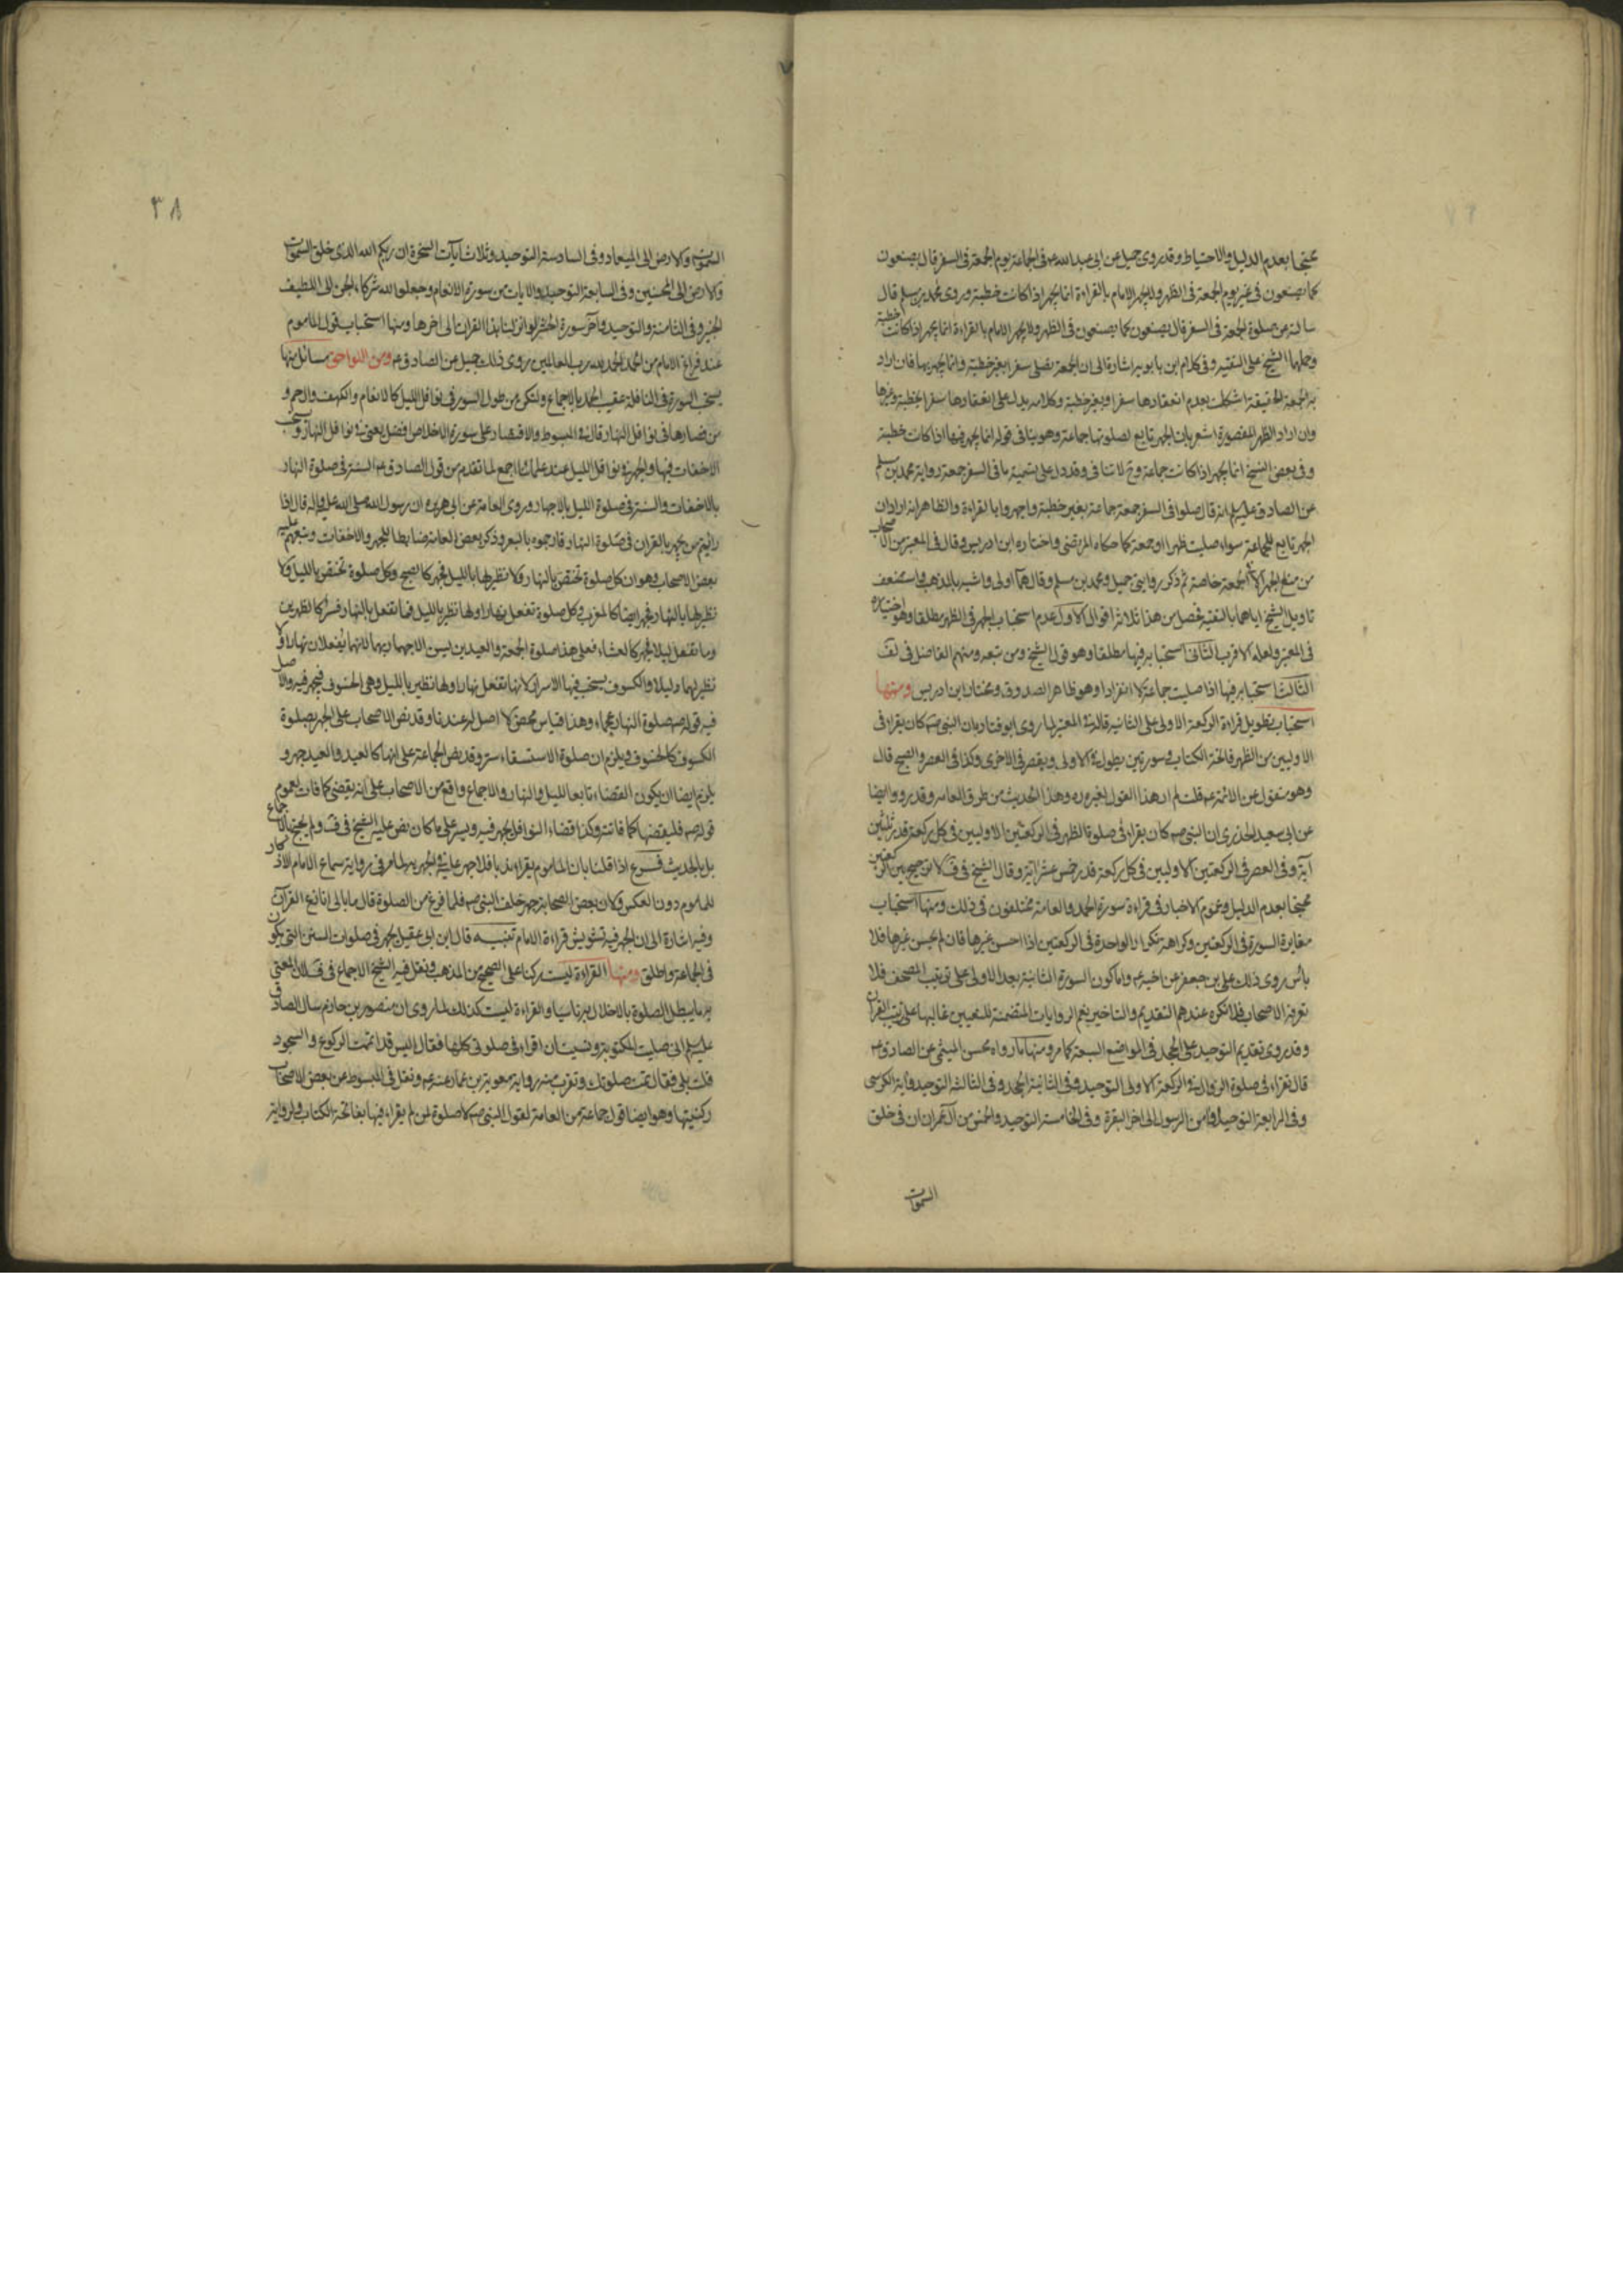 محتجا بعدم الدليل والاحتياط وقد روى جميل عن ابى عبد الله عم فى الجماعة يوم الجمعة فى السفر قال يصنعون
كما يصنعون فى غير يوم الجمعة فى الظهر ولا يجهر الامام بالقراءة انما يجهر اذا كانت خطبة وروى محمد بن مسلم قال
سالته عن صلوة الجمعة فى السفر قال يصنعون كما يصنعون فى الظهر ولا يجهر الامام بالقراءة انما يجهر اذا كانت خطبة
وحملها الشيخ على التقية وفى كلام ابن بابويه اشارة الى ان الجمعة تصلى سفرا بغير خطبة وانما يجهر بها فان اراد
به الجمعة الحقيقة اشكلت بعدم انعقادها سفرا وبغير خطبة وكلامه يدل على انعقادها سفرا بخطبة وغيرها
وان اراد الظهر المقصورة اشعر بان الجهر تابع لصلوتها جماعة وهو ينافى قوله انما يجهر فيها اذا كانت خطبة
وفى بعض النسخ انما يجهر اذا كانت جماعة وح لا تنافى وقد دل على تسمية ما فى السفر جمعة رواية محمد بن مسلم
عن الصادق عليه السلم انه قال صلوا فى السفر جمعة جماعة بغير خطبة واجهروا بالقراءة والظاهر انه اراد ان
الجهر تابع للجماعة سواء صليت ظهرا او جمعة كما حكاه المرتضى واختاره ابن ادريس وقال فى المعتبر من الاصحاب
من منع الجهر الا فى الجمعة خاصة ثم ذكر روايتى جميل ومحمد بن مسلم وقال هما اولى واشبه بالمذهب واستضعف
تاويل الشيخ اياهما بالتقية فحصل من هذا ثلاثة اقوال الاول عدم استحباب الجهر فى الظهر مطلقا وهو اختياره
فى المعتبر ولعله الاقرب الثانى استحبابه فيها مطلقا وهو قول الشيخ ومن تبعه ومنهم الفاضل فى لف
الثالث استحبابه فيها اذا صليت جماعة لا انفرادا وهو ظاهر الصدوق ومختار ابن ادريس ومنها
استحباب تطويل قراءة الركعة الاولى على الثانية قاله فى المعتبر لما روى ابو قتادة بان النبى صم كان يقراء فى
الاوليين من الظهر فاتحة الكتاب وسورتين يطول فى الاولى ويقصر فى الاخرى وكذا فى العصر والصبح قال
وهو منقول عن الائمة عم قلت لم ار هذا القول لغيره ره وهذا الحديث من طرق العامه وقد رووا ايضا
عن ابى سعيد الخدرى ان النبى صم كان يقراء فى صلوة الظهر فى الركعتين الاوليين فى كل ركعة قدر ثلثين
آية وفى العصر فى الركعتين الاوليين فى كل ركعة قدر خمس عشر آية وقال الشيخ فى ف لا ترجيح بين الركعتين
محتجا بعدم الدليل وعموم الاخبار فى قراءة سورة الحمد والعامة مختلفون فى ذلك ومنها استحباب
مغايرة السورة فى الركعتين وكراهة تكرار الواحدة فى الركعتين اذا احسن غيرها فان لم يحسن غيرها فلا
بأس روى ذلك على بن جعفر عن اخيه عم واما كون السورة الثانية بعد الاولى على ترتيب المصحف فلا
تعرفه الاصحاب فلا تكره عندهم التقديم والتاخير نعم الروايات المتضمنة للتعيين غالبها على ترتيب القران
وقد روى تقديم التوحيد على الجحد فى المواضع السبعة كما مر ومنها ما رواه محسن الميثمى عن الصادق عم
قال تقراء فى صلوة الزوال فى الركعة الاولى التوحيد وفى الثانية الجحد وفى الثالثة التوحيد وآية الكرسى
وفى الرابعة التوحيد وآمن الرسول الى اخر البقرة وفى الخامسة التوحيد والخمس من آل عمران ان فى خلق
السموات
٣٨
السموات والارض الى الميعاد وفى السادسة التوحيد وثلاث آيات السخرة ان ربكم الله الذى خلق السموات
والارض الى المحسنين وفى السابعة التوحيد والايات من سورة الانعام وجعلوا لله شركاء الجن الى اللطيف
الخبير وفى الثامنة والتوحيد وآخر سورة الحشر لو انزلنا هذا القران الى اخرها ومنها استحباب قول الماموم
عند فراغ الامام من الحمد الحمد لله رب العالمين روى ذلك جميل عن الصادق عم ومن اللواحق مسائل منها
يستحب السورة فى النافلة عقيب الحمد بالاجماع ولتكن من طول السور فى نوافل الليل كالانعام والكهف والرحم و
من قصارها فى نوافل النهار قال فى المبسوط والاقتصار على سورة الاخلاص افضل يعنى فى نوافل النهار ويستحب
الاخفات فيها والجهر فى نوافل الليل عند علمائنا اجمع لما تقدم من قول الصادق عم السنة فى صلوة النهار
بالاخفات والسنة فى صلوة الليل بالاجهار وروى العامة عن ابى هريره ان رسول الله صلى الله عليه واله قال اذا
رايتم من يجهر بالقران فى صلوة النهار فارجموه بالبعر وذكر بعض العامة ضابطا للجهر والاخفات وتبعهم عليه
بعض الاصحاب وهو ان كل صلوة تختص بالنهار ولا نظير لها بالليل فجهر كالصبح وكل صلوة تختص بالليل ولا
نظير لها بالنهار فجهر ايضا كالمغرب وكل صلوة تفعل نهارا ولها نظير بالليل فما تفعل بالنهار فسر كالظهرين
وما تفعل ليلا فجهر كالعشاء فعلى هذا صلوة الجمعة والعيدين ليس الاجهار بهما لانهما يفعلان نهارا ولا
نظير لهما ليلا والكسوف يستحب فيها الاسرار لانها تفعل نهارا ولها نظير بالليل وهى الخسوف فيجهر فيه والاصل
فيه قوله صم صلوة النهار عجماء وهذا قياس محض لا اصل له عندنا وقد نص الاصحاب على الجهر بصلوة
الكسوف كالخسوف ويلزم ان صلوة الاستسقاء سر وقد نص الجماعة على انها كالعيد والعيد جهر و
يلزم ايضا ان يكون القضاء تابعا لليل والنهار والاجماع واقع من الاصحاب على انه يقضى كما فات لعموم
قوله صم فليقضها كما فاتته وكذا قضاء النوافل يجهر فيه ويسر على ما كان نص عليه الشيخ فى ف ولم يحتج بالاجماع
بل بالحديث فرع اذا قلنا بان الماموم يقراء ندبا فلا جهر عليه فى الجهرية لما مر فى رواية سماع الامام الاذكار
للماموم دون العكس ولان بعض الصحابة جهر خلف النبى صم فلما فرغ من الصلوة قال ما بالى انازع القرآن
وفيه اشارة الى ان الجهر فيه تشويش قراءة الامام تنبيه قال ابن ابى عقيل يجهر فى صلوات السنن التى يكون
فى الجماعة واطلق ومنها القراءة ليست ركنا على الصحيح من المذهب ونقل فيه الشيخ الاجماع فى ف لان المعنى
به ما يبطل الصلوة بالاخلال به ناسيا والقراءة ليست كذلك لما روى ان منصور بن حازم سال الصادق
عليه السلم انى صليت المكتوبة ونسيت ان اقراء فى صلوتى كلها فقال اليس قد اتممت الركوع والسجود
قلت بلى فقال تمت صلوتك وتقرب منه رواية معوية بن عمار عنه عم ونقل فى المبسوط عن بعض الاصحاب
ركنيتها وهو ايضا قول جماعة من العامة لقول النبى صم لا صلوة لمن لم يقراء فيها بفاتحة الكتاب ولرواية